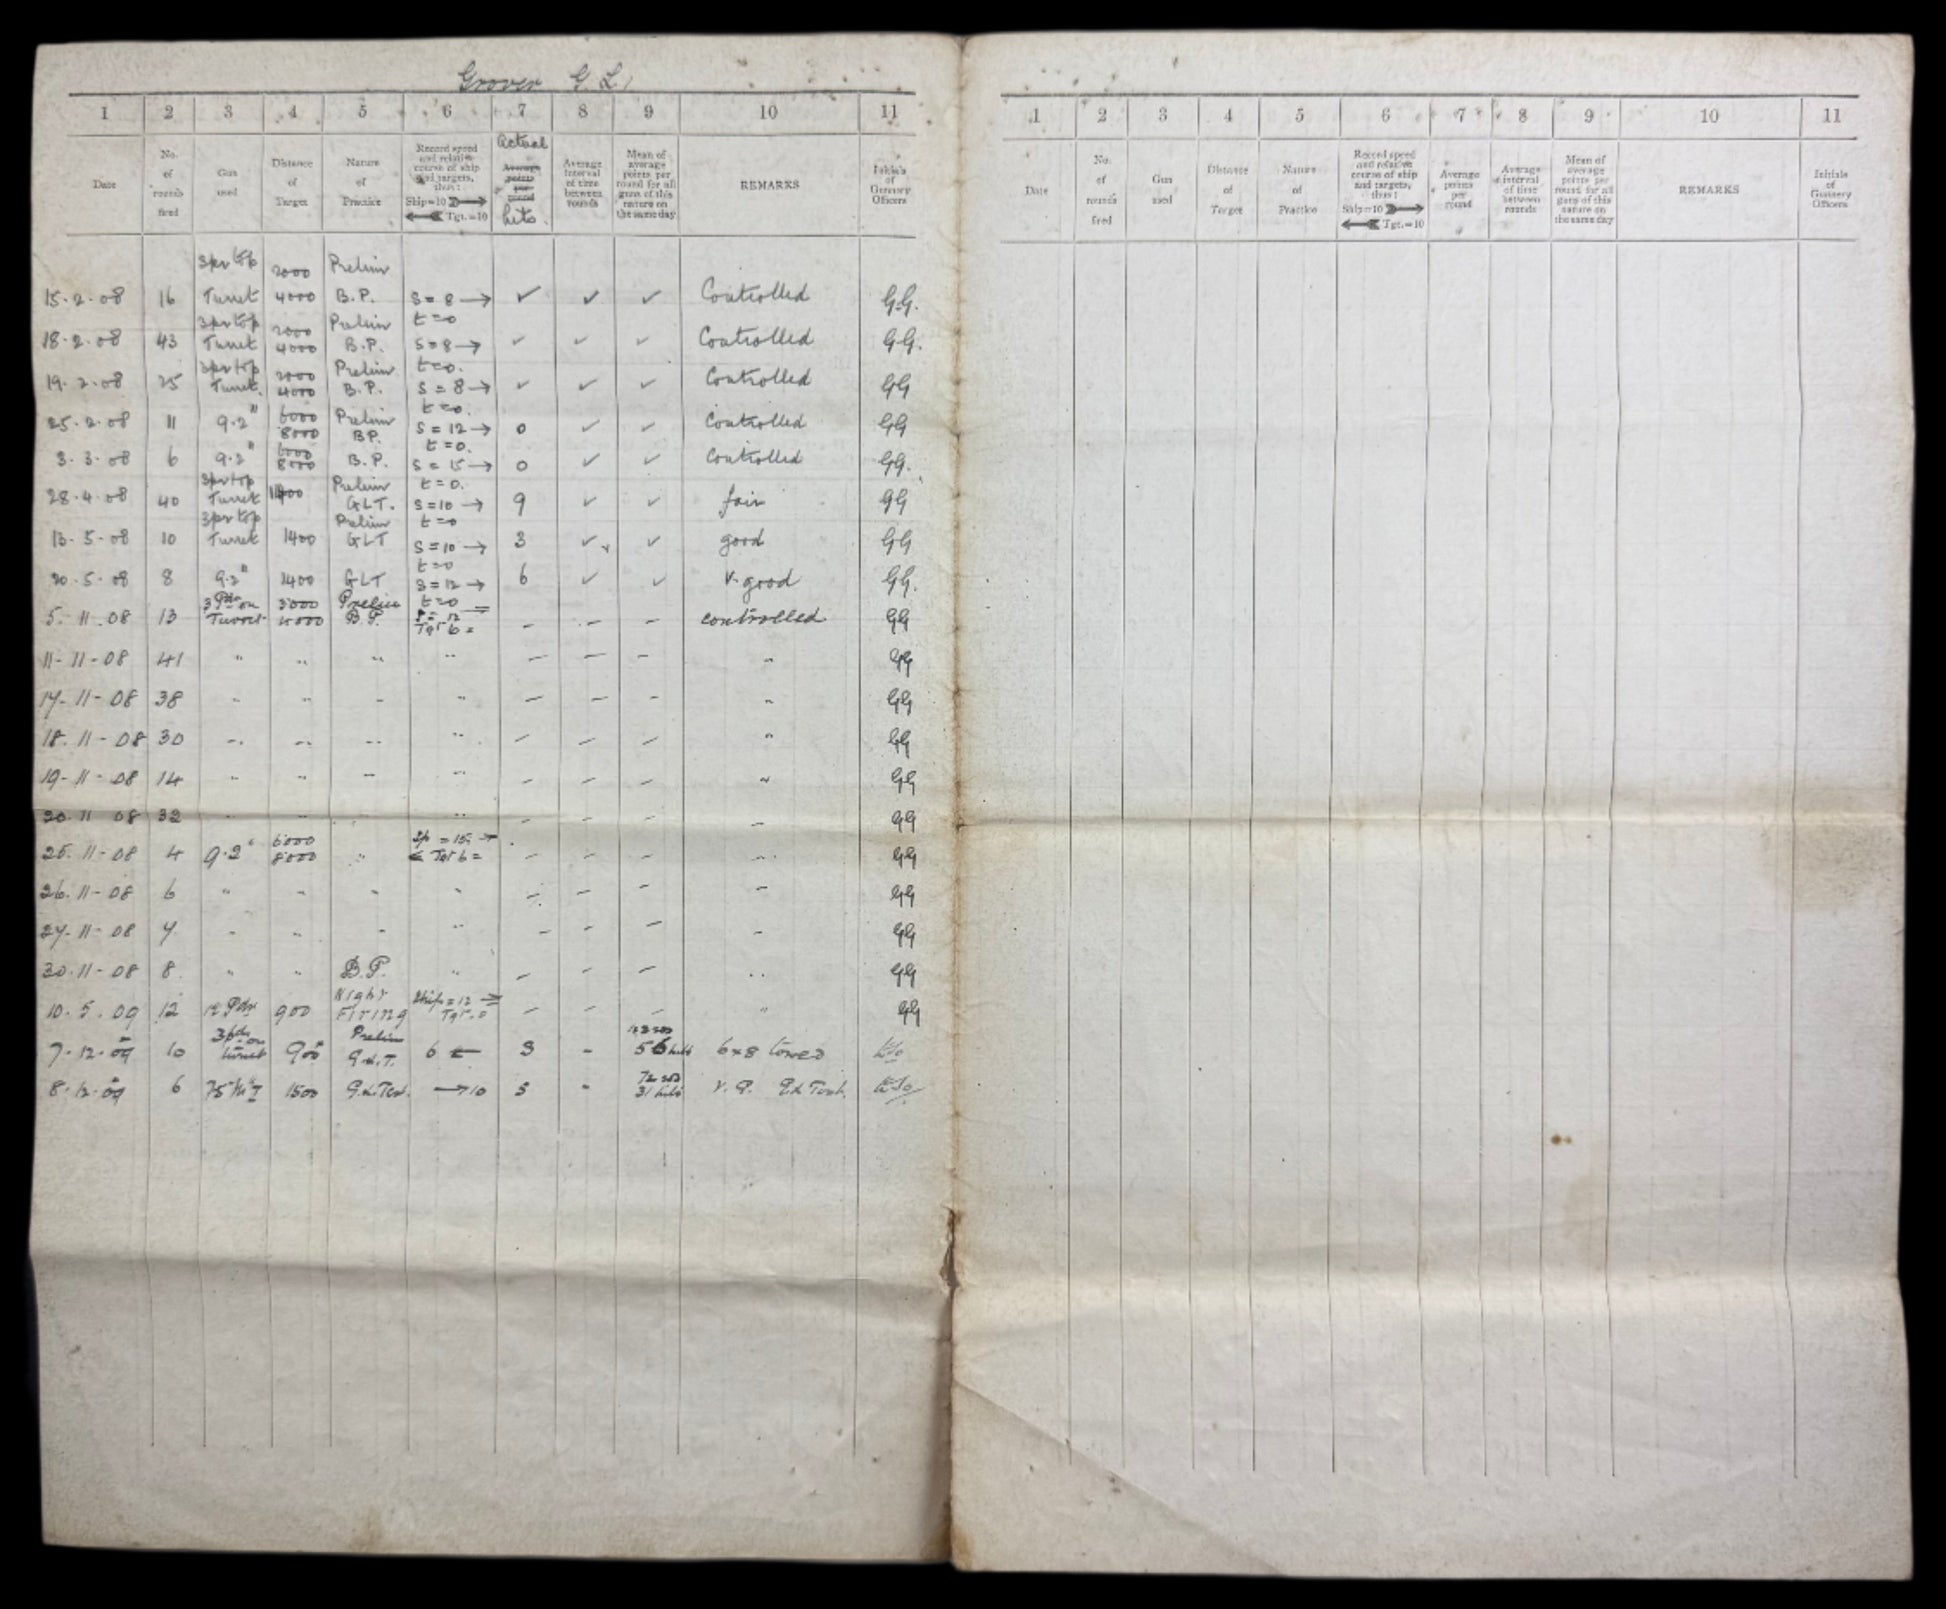 Grover G. L.
1 2 3 4 5 6 7 8 9 10 11
Date
No. of rounds fired
Gun used
Distance of Target
Nature of Practice
Record speed and relative course of ship and targets, thus: Ship=10 Tgt.=10
Actual Average points per round hits.
Average interval of time between rounds
Mean of average points per round for all guns of this nature on the same day
REMARKS
Initials of Gunnery Officers
3pr top 2000 Prelim
15-2-08 16 Turret 4000 B.P. S = 8 → ✓ ✓ ✓ Controlled GG.
3pr top 2000 Prelim t=0
18-2-08 43 Turret 4000 B.P. S=8 → ✓ ✓ ✓ Controlled GG.
3pr top 2000 Prelim t=0.
19-2-08 25 Turret 4000 B.P. S = 8 → ✓ ✓ ✓ Controlled GG
6000 Prelim t=0.
25-2-08 11 9.2" 8000 BP. S = 12 → 0 ✓ ✓ Controlled GG
6000 t=0.
3-3-08 6 9.2" 8000 B.P. S = 15 → 0 ✓ ✓ Controlled GG.
3pr top Prelim t=0.
28-4-08 40 Turret 1400 GLT. S=10 → 9 ✓ ✓ fair GG
3pr top Prelim t=0
13-5-08 10 Turret 1400 GLT S=10 → 3 ✓ ✓ good GG
t=0
20-5-08 8 9.2" 1400 GLT S=12 → 6 ✓ ✓ v. good GG.
3Pdr on 3000 Prelim t=0
5-11.08 13 Turret 4000 B.P. S = 12 Tgt 6 = - - - controlled GG
11-11-08 41 " " " " - - - " GG
17-11-08 38 " " " " - - - " GG
18.11-08 30 " " " " - - - " GG
19-11-08 14 " " " " - - - " GG
20.11 08 32 " " " " - - - " GG
6000 Sp = 15 →
25.11-08 4 9.2" 8000 " ← Tgt 6 = - - - " GG
26.11-08 6 " " " " - - - " GG
27-11-08 7 " " " " - - - " GG
30.11-08 8 " " B.P. " - - - " GG
Night Ship = 12 →
10.5.09 12 12 Pdr 900 Firing Tgt. 0 - - - " GG
3pdr on Prelim
7-12-09 10 turret 900 G.L.T. 6 ← 3 - 56 hits 6x8 towed
8-12-09 6 1500 G.L.Test. → 10 5 - 31 hits V.G.
1 2 3 4 5 6 7 8 9 10 11
Date
No. of rounds fired
Gun used
Distance of Target
Nature of Practice
Record speed and relative course of ship and targets, thus: Ship=10 Tgt.=10
Average points per round
Average interval of time between rounds
Mean of average points per round for all guns of this nature on the same day
REMARKS
Initials of Gunnery Officers